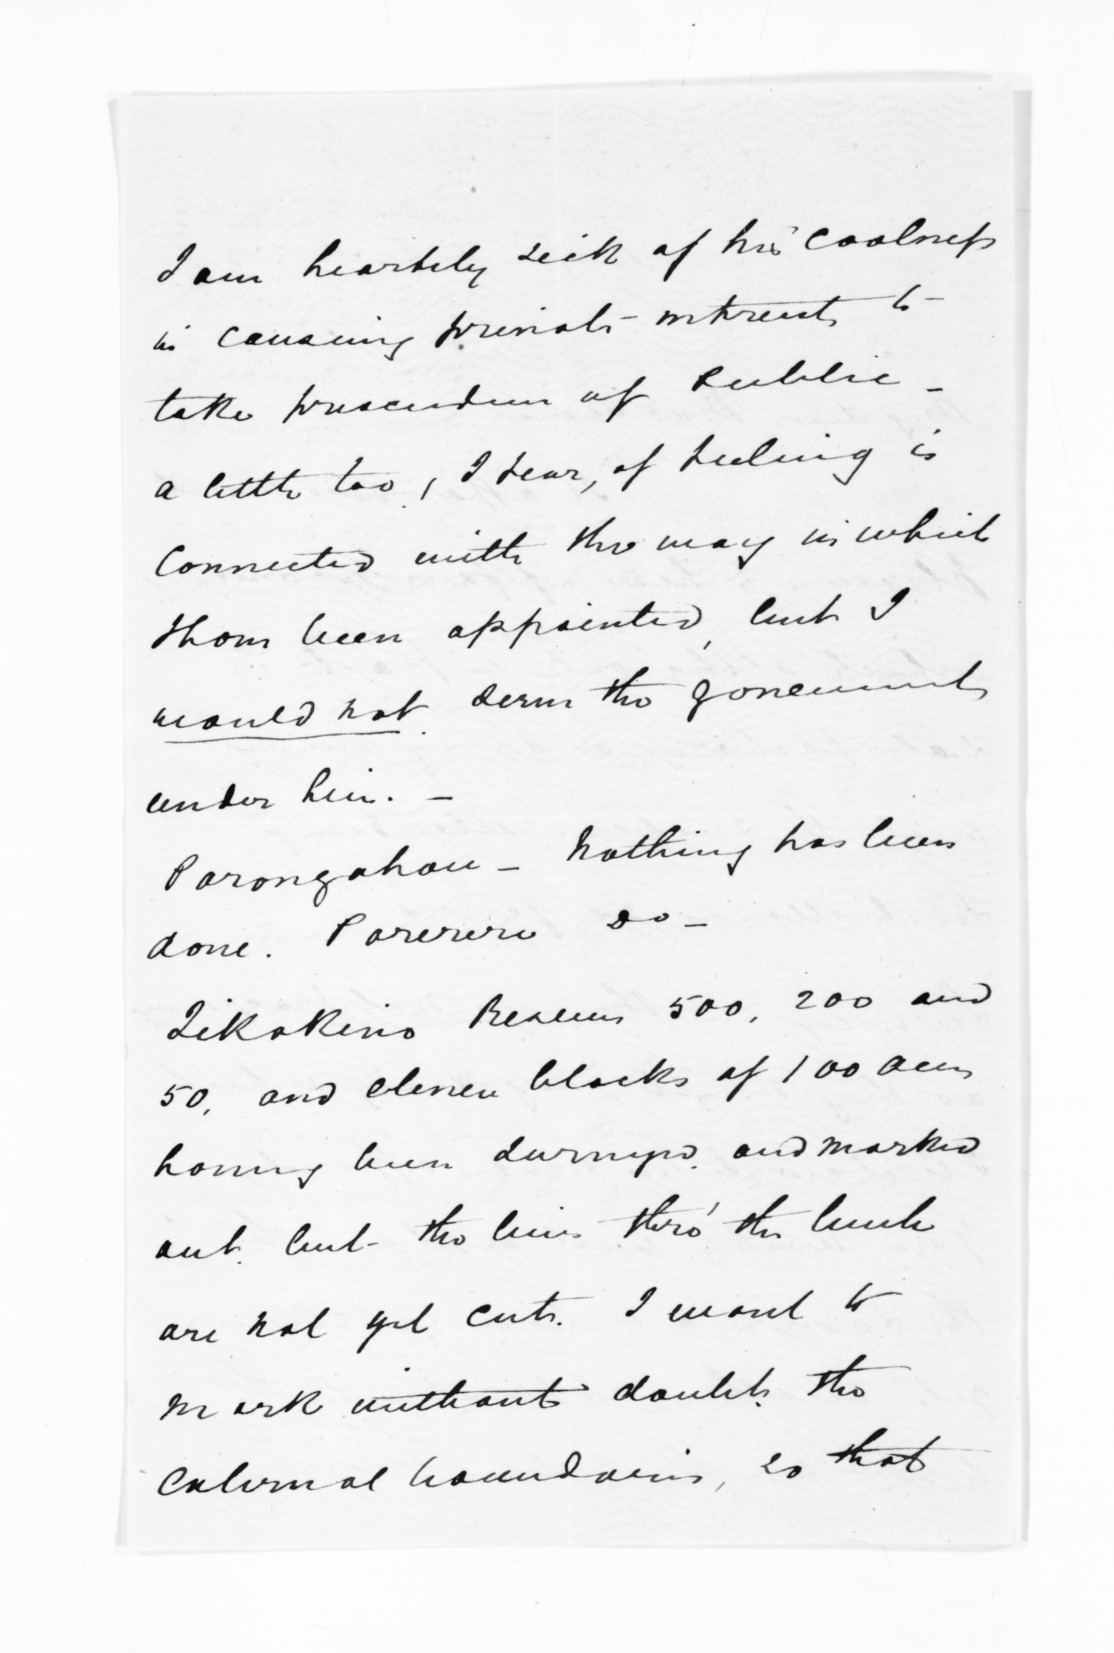 I am heartily sick of his coolness
in causing private interests to
take precedence of Public -
a little too, I fear, of feeling is
connected with the way in which
I have been appointed, but I
would not serve the government
under him. -
Porongahau - Nothing has been
done. Parerere Do -
Tikokino Reserves 500, 200 and
50, and eleven blocks of 100 acres
having been surveyed and marked
out but the lines thro' the bush
are not yet cut. I want to
mark without doubt the
external boundaries, so that